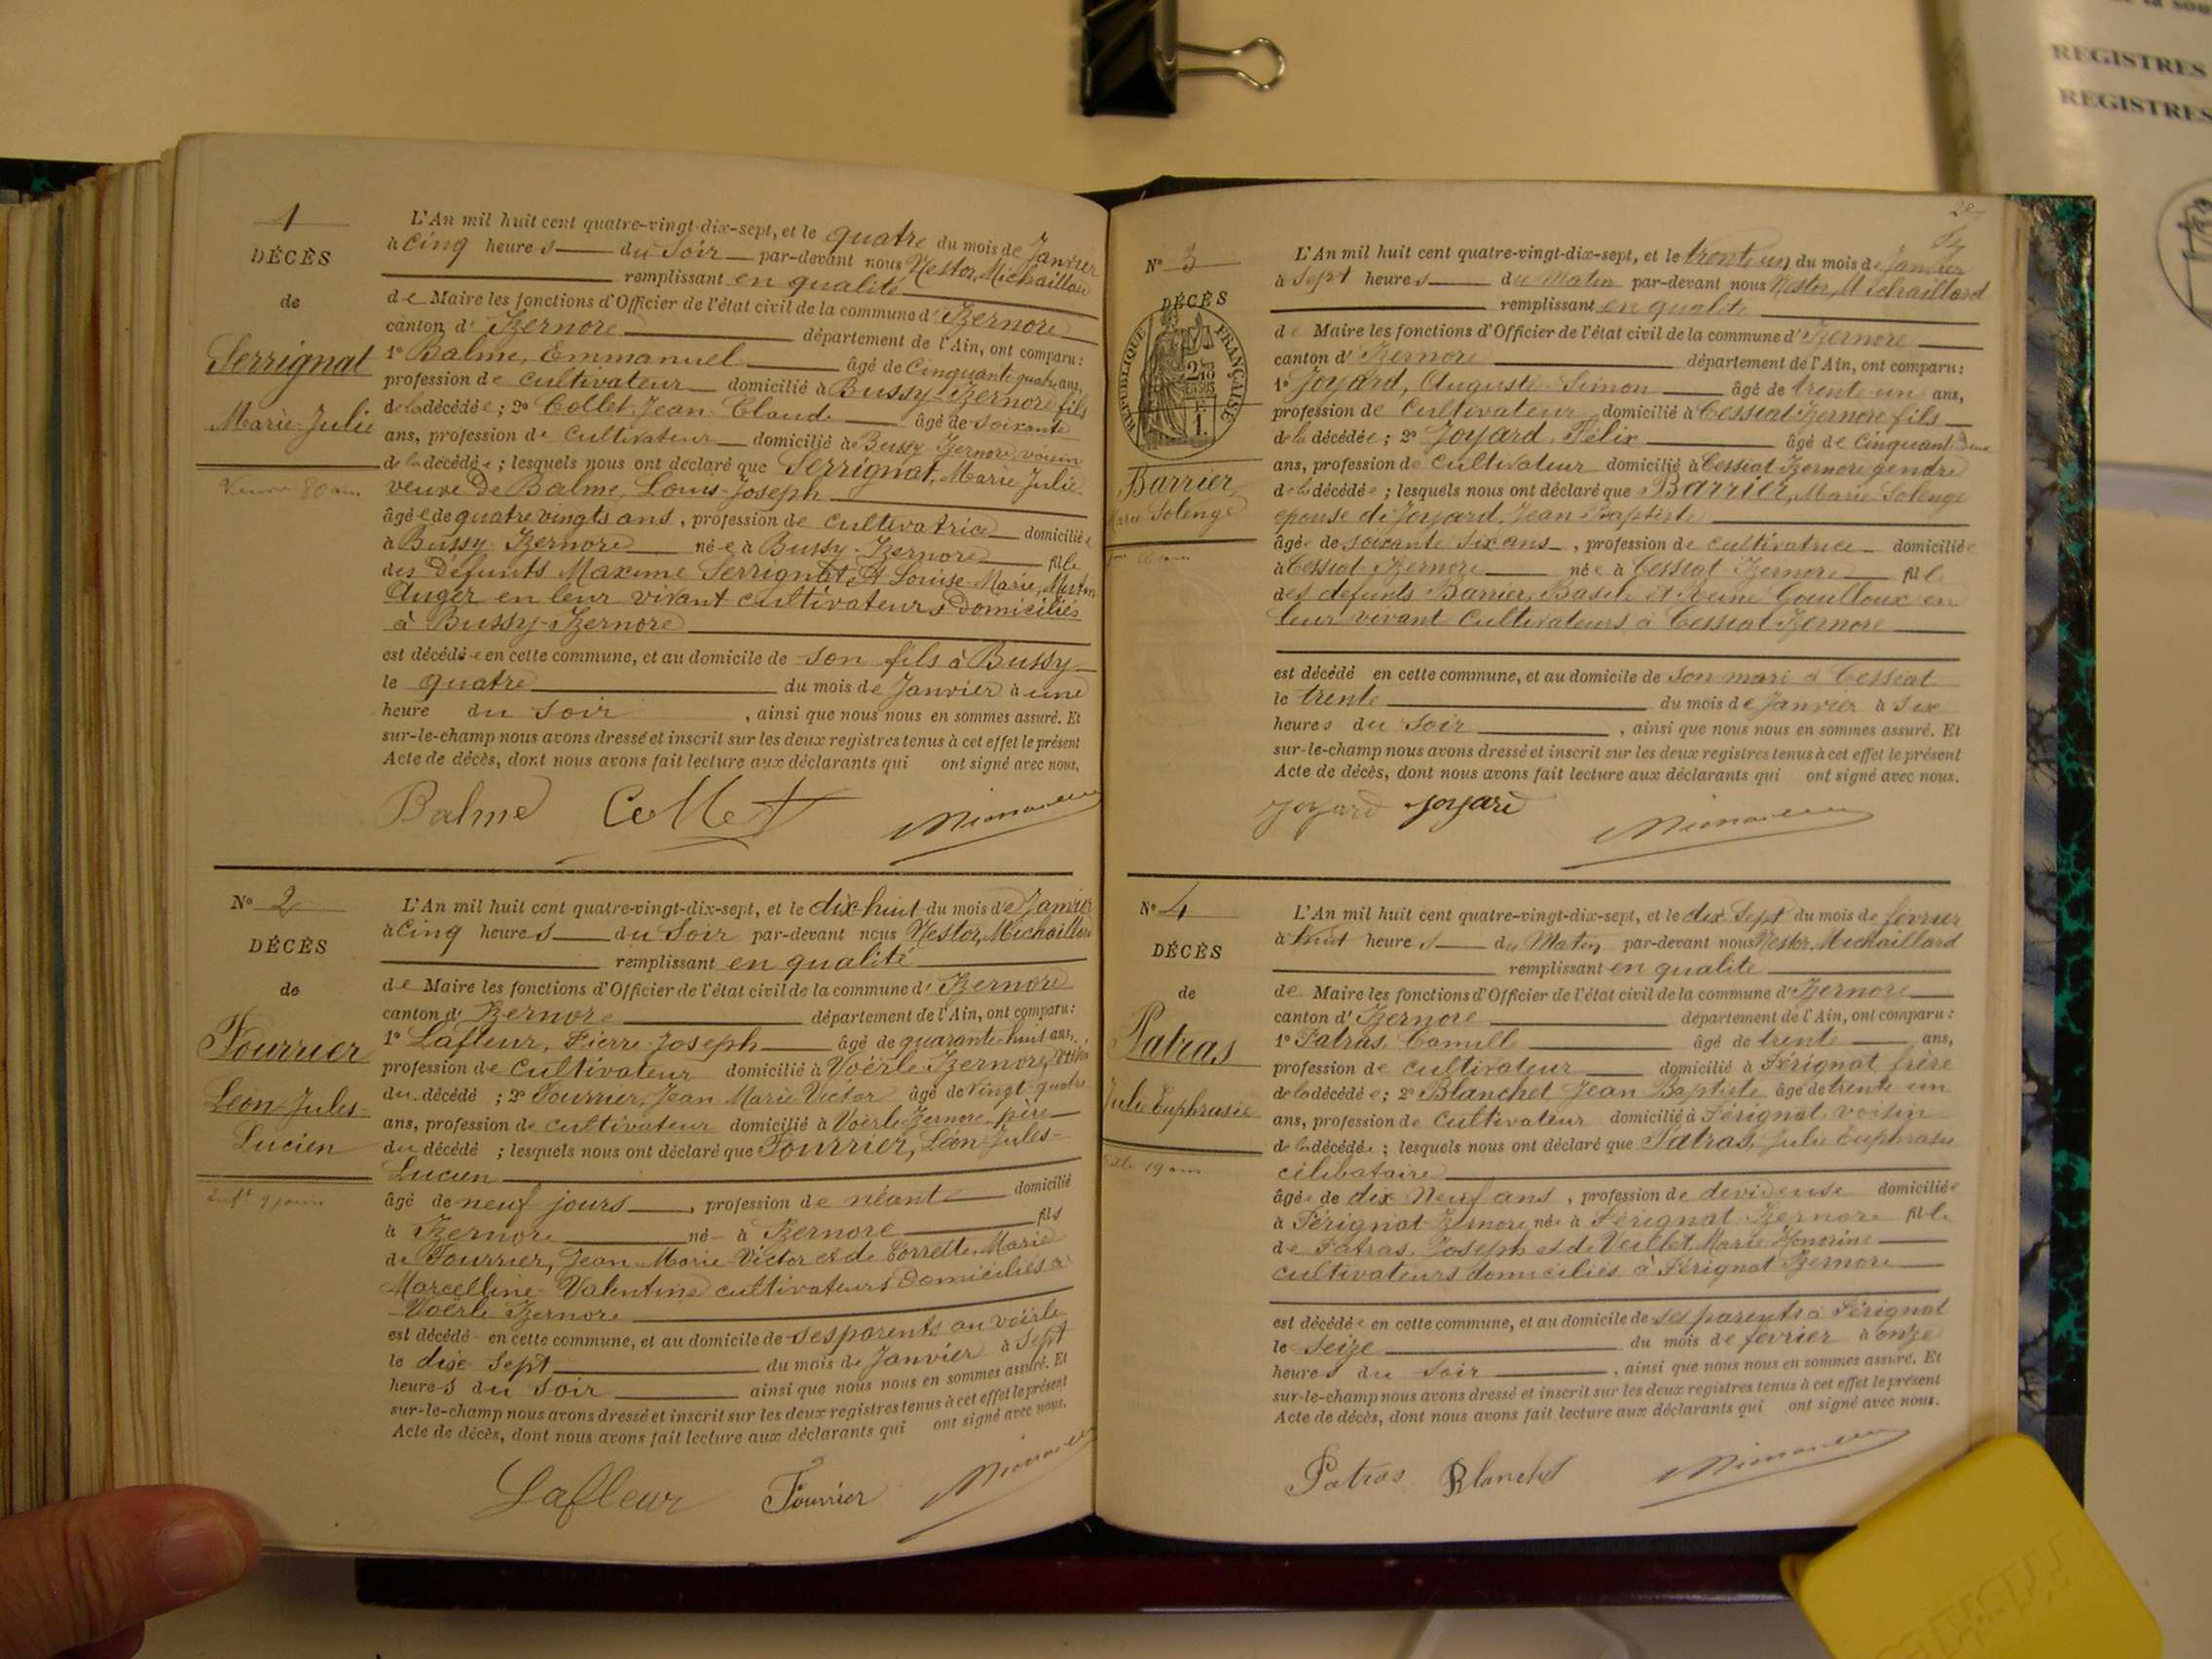 1
DÉCÈS
de
Serrignat
Marie-Julie
Veuve 80 ans
L'An mil huit cent quatre-vingt-dix-sept, et le quatre du mois de Janvier
à Cinq heures du Soir par-devant nous Nestor, Michaillard
remplissant en qualité
de Maire les fonctions d'Officier de l'état civil de la commune d'Izernore
canton d'Izernore département de l'Ain, ont comparu:
1º Balme, Emmanuel âgé de Cinquante quatre ans,
profession de cultivateur domicilié à Bussy-Izernore fils
de la décédée; 2º Collet Jean-Claude âgé de soixante
ans, profession de Cultivateur domicilié à Bussy Izernore, voisin
de la décédée; lesquels nous ont déclaré que Serrignat, Marie Julie
veuve de Balme, Louis-Joseph
âgée de quatre vingts ans, profession de cultivatrice domiciliée
à Bussy-Izernore née à Bussy-Izernore fille
des défunts Maxime Serrignat et Louise-Marie,
Auger en leur vivant cultivateurs Domiciliés
à Bussy-Izernore
est décédée en cette commune, et au domicile de son fils à Bussy
le quatre du mois de Janvier à une
heure du Soir, ainsi que nous nous en sommes assuré. Et
sur-le-champ nous avons dressé et inscrit sur les deux registres tenus à cet effet le présent
Acte de décès, dont nous avons fait lecture aux déclarants qui ont signé avec nous,
Balme Collet
Nº 2
DÉCÈS
de
Fourrier
Léon-Jules-
Lucien
Enft 9 jours
L'An mil huit cent quatre-vingt-dix-sept, et le dix huit du mois de Janvier
à Cinq heures du Soir par-devant nous Nestor, Michaillard
remplissant en qualité
de Maire les fonctions d'Officier de l'état civil de la commune d'Izernore
canton d'Izernore département de l'Ain, ont comparu:
1º Lafleur, Pierre-Joseph âgé de quarante-huit ans,
profession de Cultivateur domicilié à Voërle Izernore, voisin
du décédé; 2º Fourrier, Jean Marie Victor âgé de vingt-quatre
ans, profession de cultivateur domicilié à Voërle Izernore père
du décédé; lesquels nous ont déclaré que Fourrier, Léon-Jules-
Lucien
âgé de neuf jours, profession de néant domicilié
à Izernore né à Izernore fils
de Fourrier, Jean-Marie-Victor et de Corrette, Marie
Marcelline-Valentine cultivateurs Domiciliés à
Voërle Izernore
est décédé en cette commune, et au domicile de ses parents au voërle
le dix-sept du mois de Janvier à sept
heures du Soir ainsi que nous nous en sommes assuré. Et
sur-le-champ nous avons dressé et inscrit sur les deux registres tenus à cet effet le présent
Acte de décès, dont nous avons fait lecture aux déclarants qui ont signé avec nous.
Lafleur Fourrier
2e
Nº 3
DÉCÈS
RÉPUBLIQUE FRANÇAISE
Barrier
Marie Solenge
66 ans
L'An mil huit cent quatre-vingt-dix-sept, et le trente un du mois de Janvier
à Sept heures du Matin par-devant nous Nestor, Michaillard
remplissant en qualité
de Maire les fonctions d'Officier de l'état civil de la commune d'Izernore
canton d'Izernore département de l'Ain, ont comparu:
1º Joyard, Auguste-Simon âgé de trente-un ans,
profession de Cultivateur domicilié à Cessiat Izernore fils
de la décédée; 2º Joyard, Félix âgé de Cinquante
ans, profession de Cultivateur domicilié à Cessiat Izernore gendre
de la décédée; lesquels nous ont déclaré que Barrier, Marie-Solenge
épouse de Joyard, Jean Baptiste
âgée de soixante six ans, profession de cultivatrice domiciliée
à Cessiat Izernore née à Cessiat Izernore fille
des défunts Barrier, Basile et Reine Gouilloux en
leur vivant Cultivateurs à Cessiat Izernore
est décédé en cette commune, et au domicile de son mari à Cessiat
le trente du mois de Janvier à Six
heures du Soir, ainsi que nous nous en sommes assuré. Et
sur-le-champ nous avons dressé et inscrit sur les deux registres tenus à cet effet le présent
Acte de décès, dont nous avons fait lecture aux déclarants qui ont signé avec nous.
Joyard Joyard
Nº 4
DÉCÈS
de
Patras
Julie Euphrasie
19 ans
L'An mil huit cent quatre-vingt-dix-sept, et le dix Sept du mois de février
à huit heures du Matin par-devant nous Nestor, Michaillard
remplissant en qualité
de Maire les fonctions d'Officier de l'état civil de la commune d'Izernore
canton d'Izernore département de l'Ain, ont comparu:
1º Patras, Camille âgé de trente ans,
profession de cultivateur domicilié à Pérignat frère
de la décédée; 2º Blanchet Jean Baptiste âgé de trente un
ans, profession de Cultivateur domicilié à Pérignat, voisin
de la décédée; lesquels nous ont déclaré que Patras, Julie Euphrasie
célibataire
âgée de dix Neuf ans, profession de dévideuse domiciliée
à Pérignat-Izernore née à Pérignat Izernore fille
de Patras, Joseph et de Veillet, Marie Honorine
cultivateurs domiciliés à Pérignat Izernore
est décédée en cette commune, et au domicile de ses parents à Pérignat
le Seize du mois de février à onze
heures du Soir, ainsi que nous nous en sommes assuré. Et
sur-le-champ nous avons dressé et inscrit sur les deux registres tenus à cet effet le présent
Acte de décès, dont nous avons fait lecture aux déclarants qui ont signé avec nous.
Patras Blanchet
REGISTRES
REGISTRES